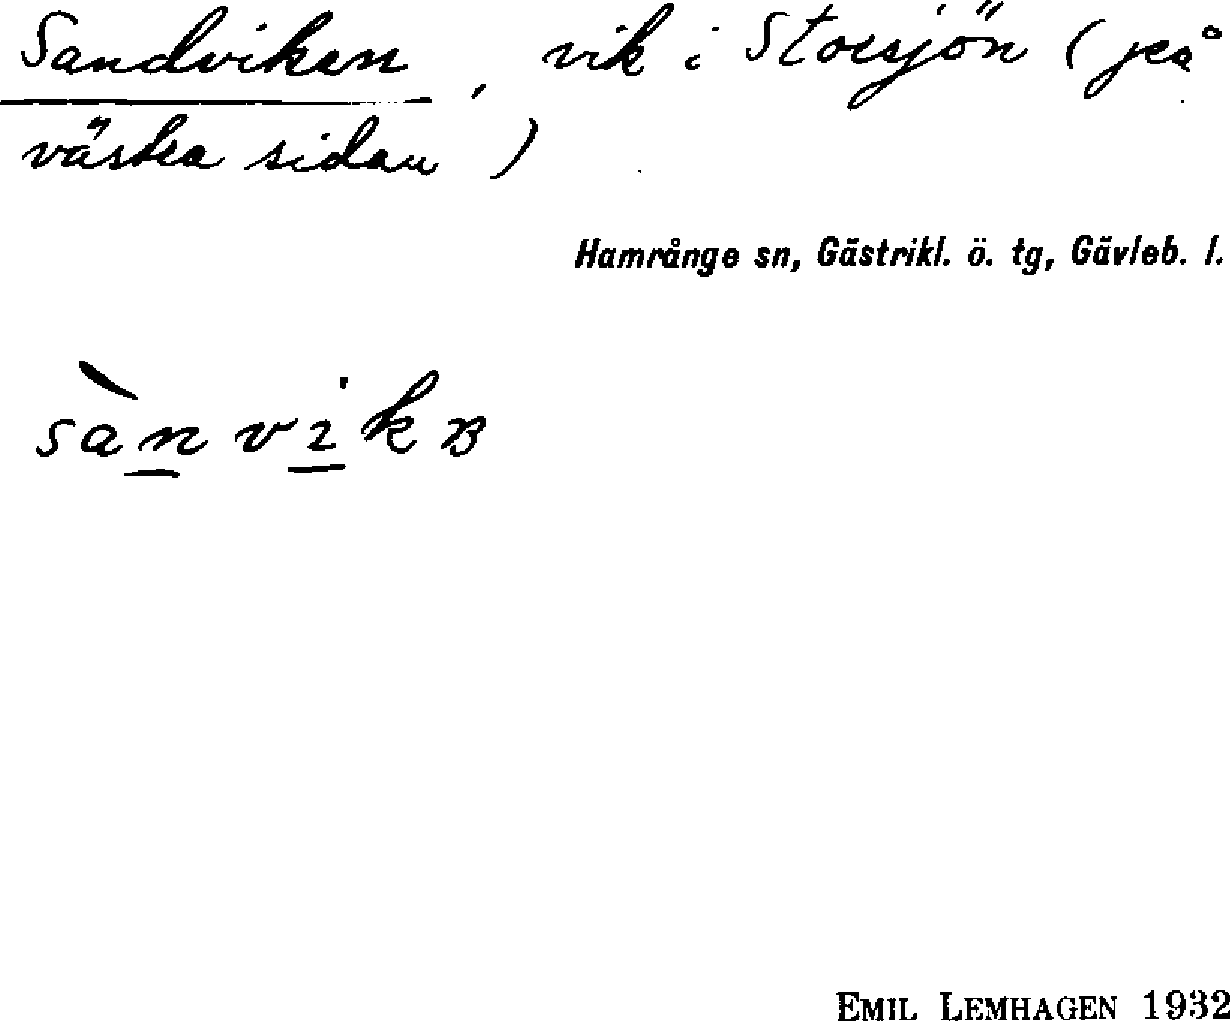 Sandviken, vik i Storsjön (på
västra sidan)
Hamrånge sn, Gästrikl. ö. tg, Gävleb. l.
EMIL LEMHAGEN 1932